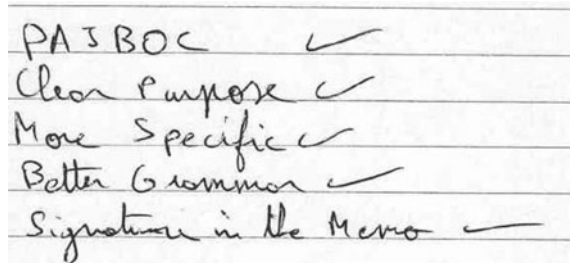 PAIBOC ✓
Clear Purpose ✓
More Specific ✓
Better Grammar ✓
Signature in the Memo ✓